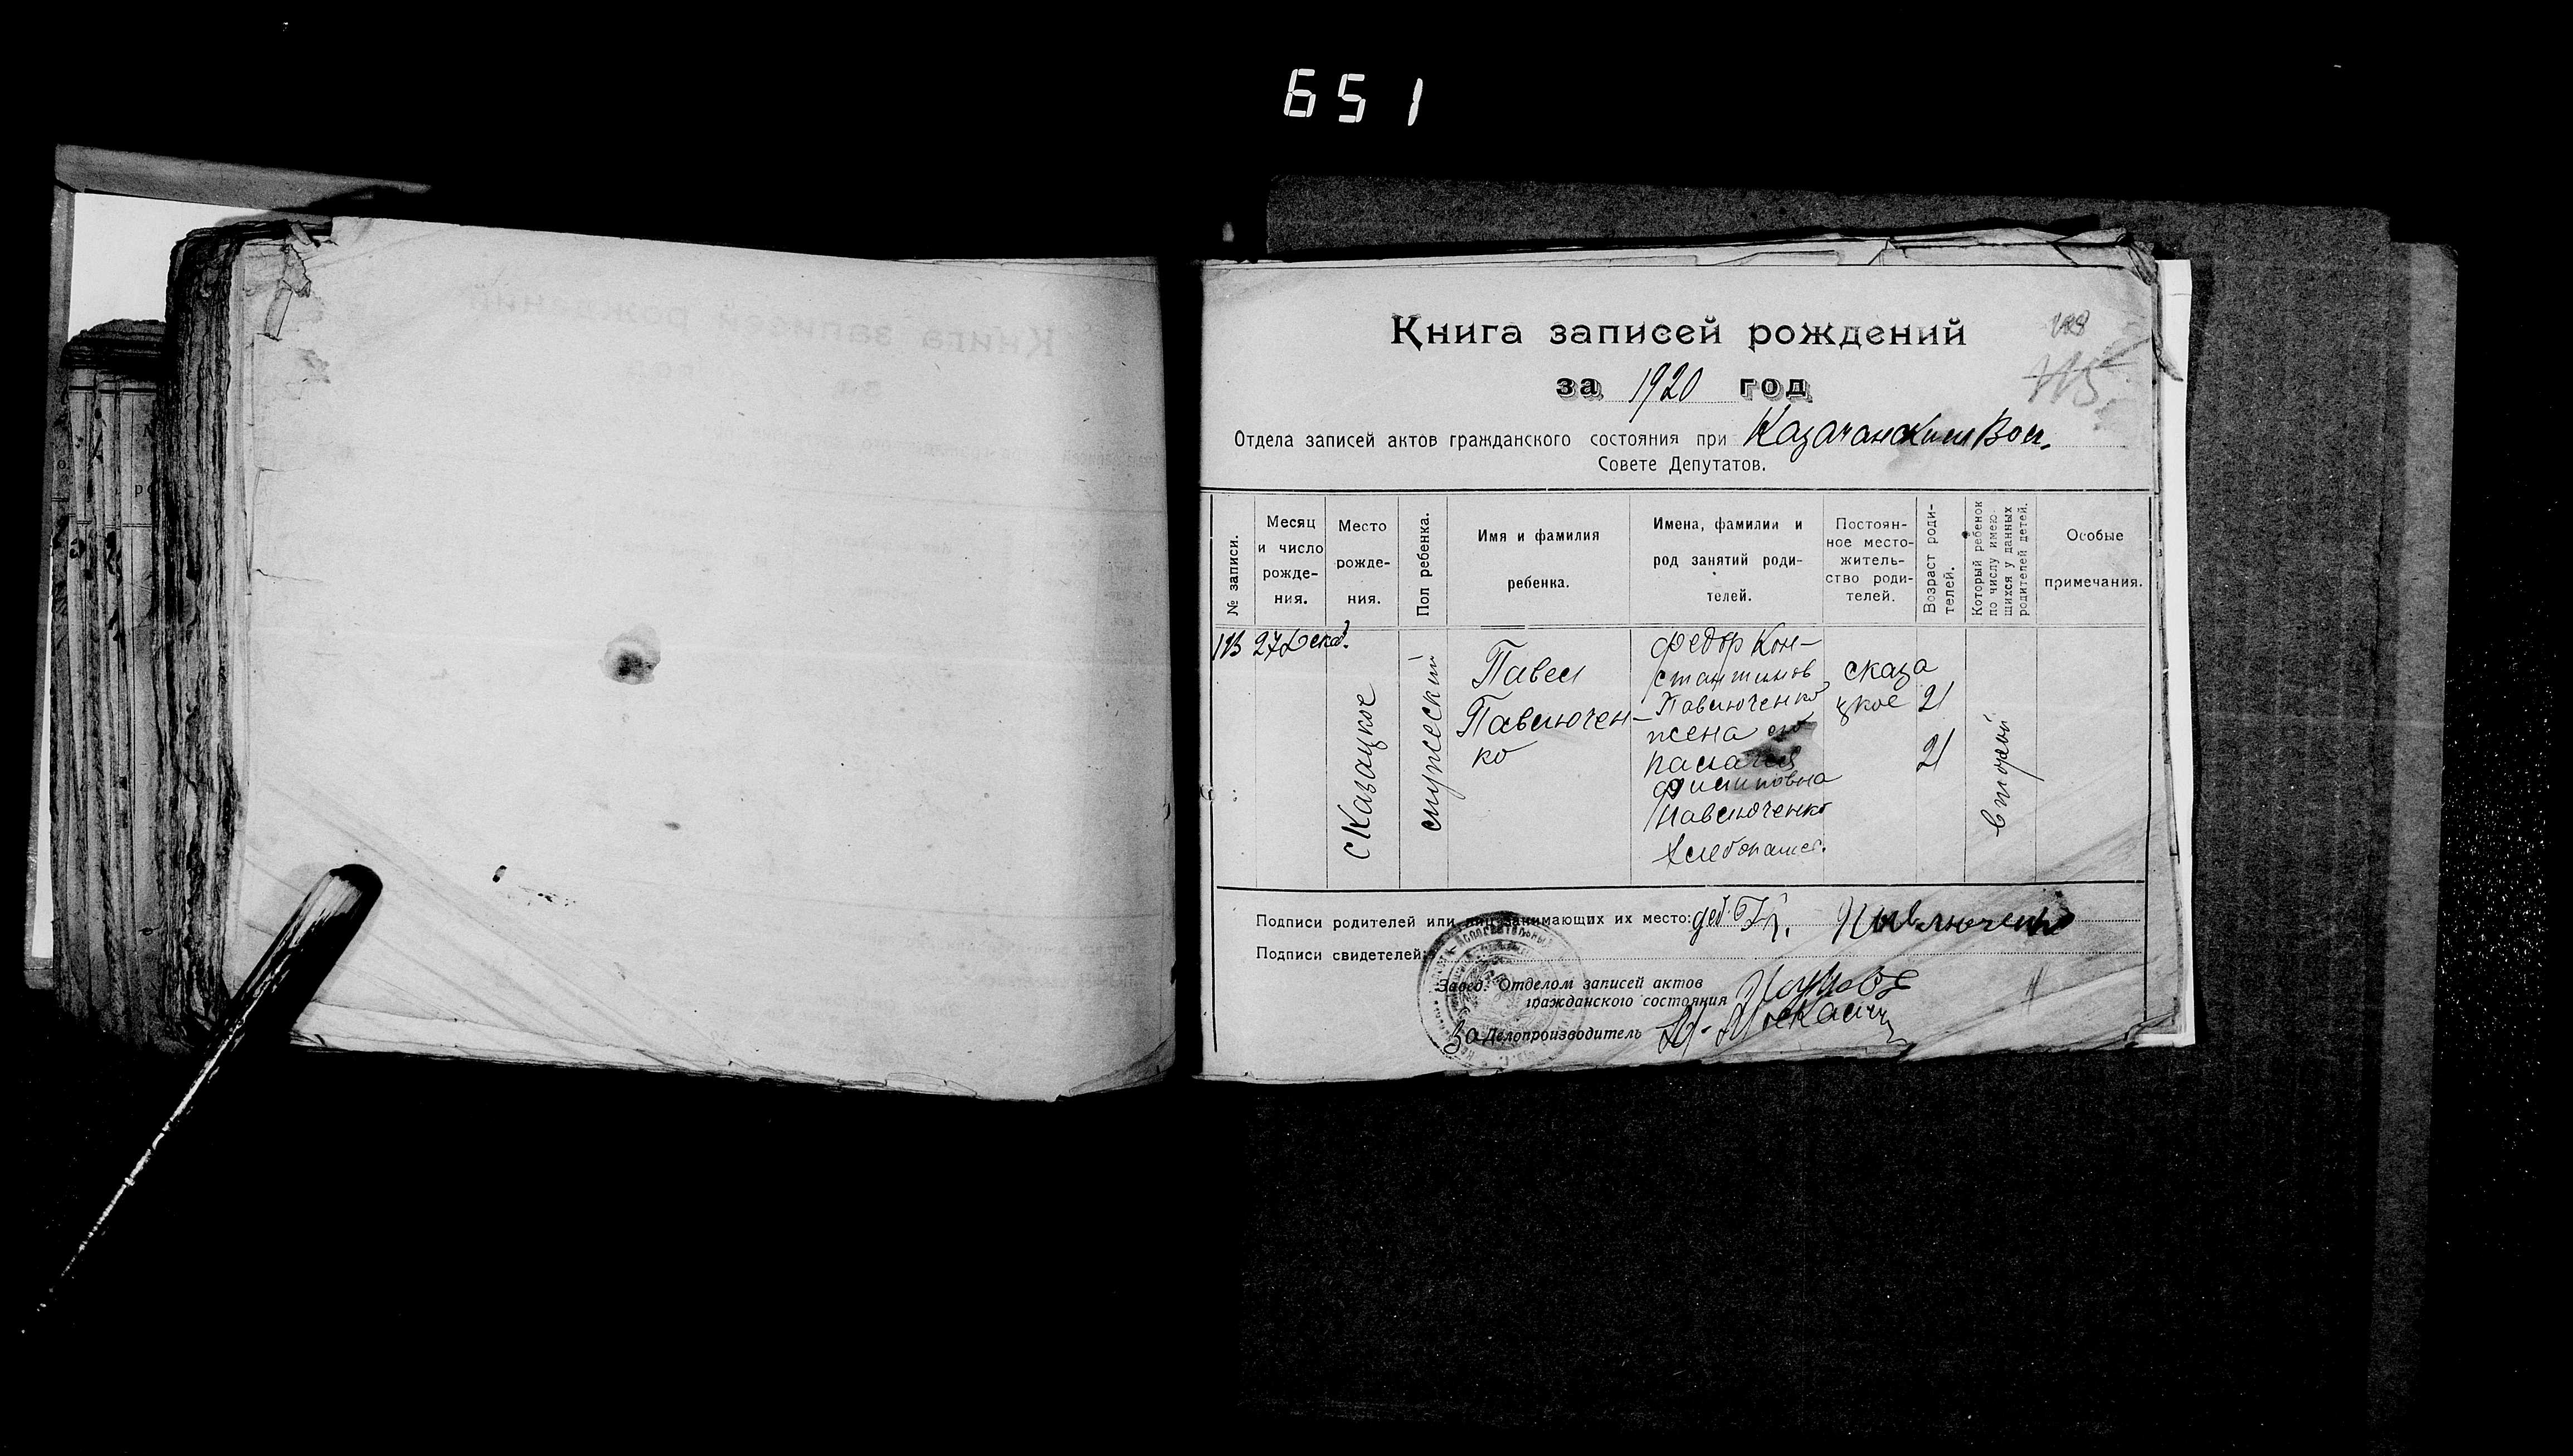 651
Книга записей рождений
за 1920 год
Отдела записей актов гражданского состояния при Казачанским Вол.
Совете Депутатов.
№ записи.
Месяц и число рожде- ния.
Место рожде- ния.
Пол ребенка.
Имя и фамилия ребенка.
Имена, фамилии и род занятий роди- телей.
Постоян- ное место- житель- ство роди- телей.
Возраст роди- телей.
Который ребенок по числу имею- щихся у данных родителей детей.
Особые примечания.
27 Декаб.
с Казацкое
мужеский
Павел
Павлючен-
ко
Федор Кон-
стантинов
Павлюченко
жена его
Филиповна
Павлюченко
хлебопашес.
с Каза
цкое
21
21
второй
Подписи родителей или лиц занимающих их место: Павлюченко
Подписи свидетелей:
Завед. Отделом записей актов
гражданского состояния
За Делопроизводитель